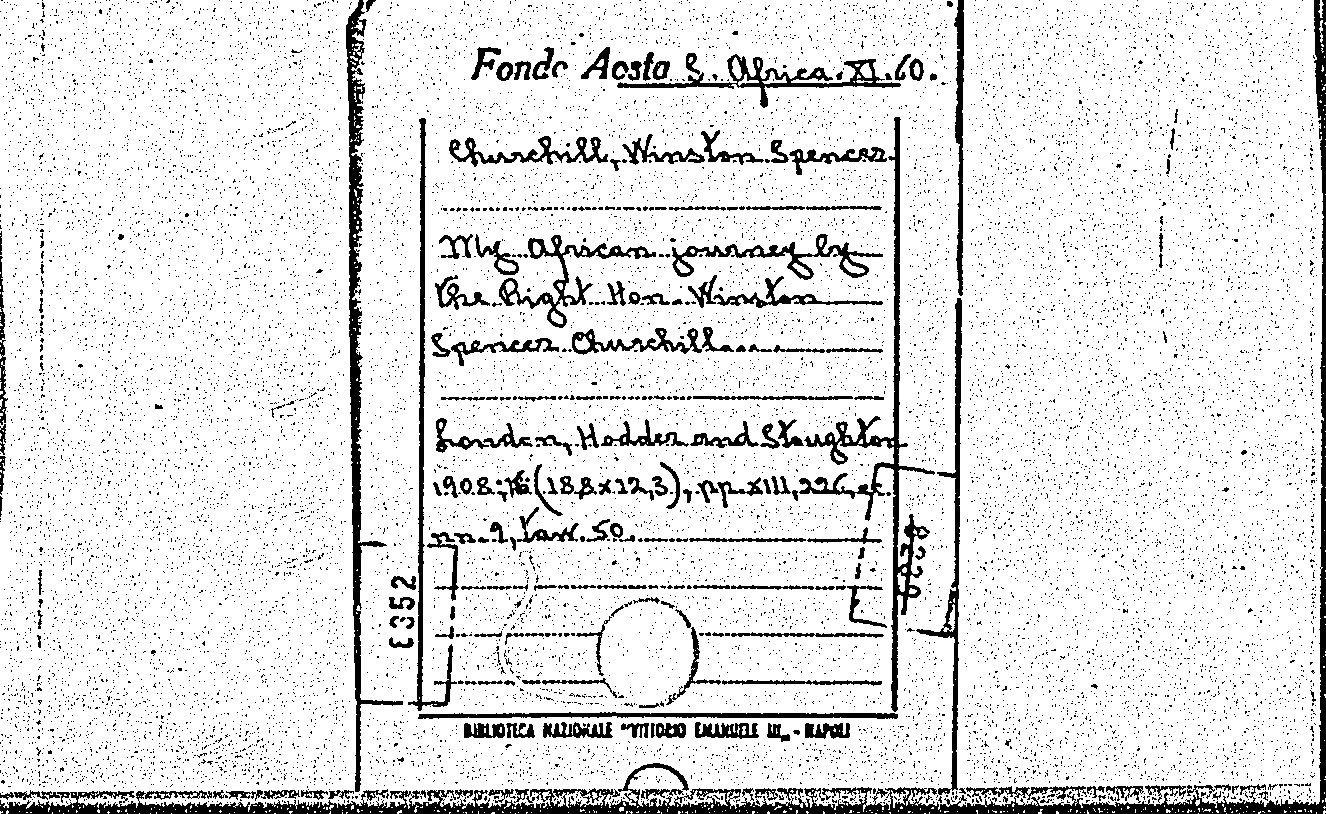 Fondo Aosta S. Africa. XI. 60.
Churchill, Winston Spencer.
My African journey by
the Right Hon. Winston
Spencer Churchill....
London, Hodder and Stoughton
1908; (18,8x12,3), pp. XIII, 226, ec.
nn. 9, tavv. 50.
6352
BIBLIOTECA NAZIONALE "VITTORIO EMANUELE III„ - NAPOLI